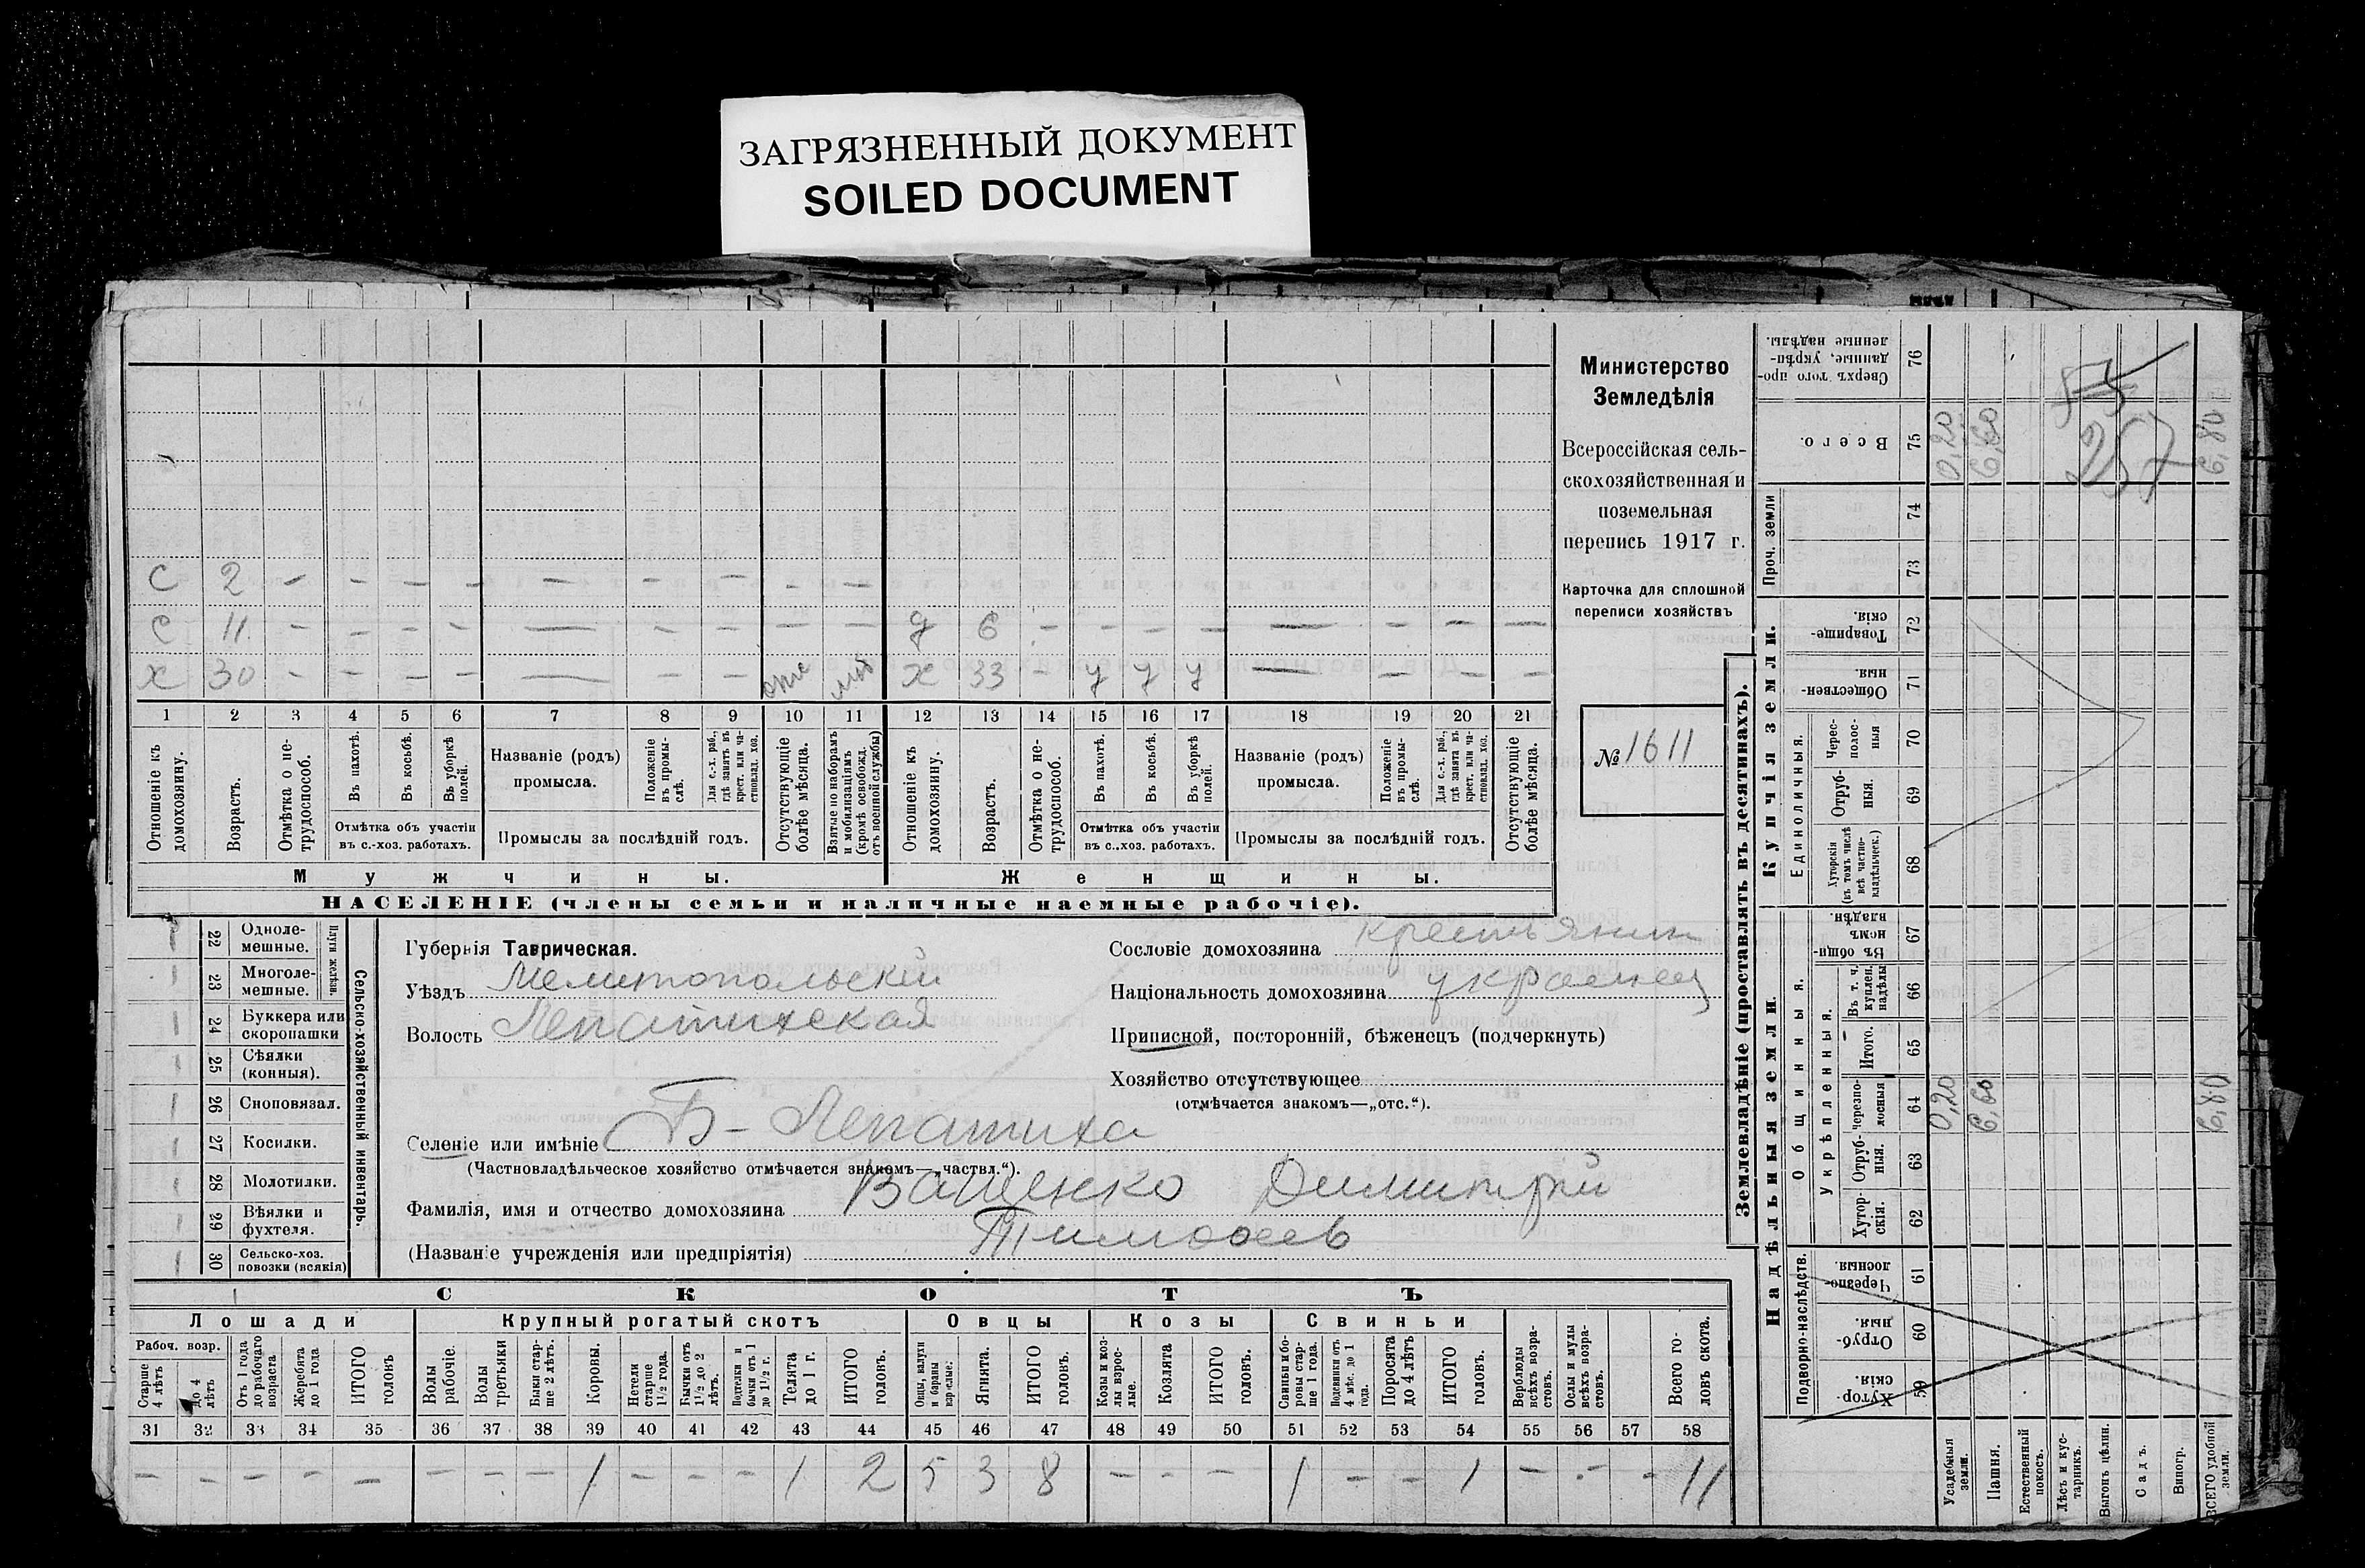 ЗАГРЯЗНЕННЫЙ ДОКУМЕНТ
SOILED DOCUMENT
С 2 – – – – — – – – –
С 11 – – – – — – – – – д 6 – – – – — – – –
Х 30 – – – – — – – отс мб Х 33 – у у у — – – –
1 2 3 4 5 6 7 8 9 10 11 12 13 14 15 16 17 18 19 20 21
Отношеніе къ домохозяину.
Возрастъ.
Отмѣтка о не-трудоспособ.
Въ пахотѣ.
Въ косьбѣ.
Въ уборкѣ полей.
Отмѣтка объ участіи
въ с.-хоз. работахъ.
Названіе (родъ)
промысла.
Положеніе въ промы-слѣ.
Для с.-х. раб., гдѣ занятъ въ крест. или ча-стновлад. хоз.
Промыслы за послѣдній годъ.
Отсутствующіе болѣе мѣсяца.
Взятые по наборамъ и мобилизаціямъ (кромѣ освобожд. отъ военной службы)
Отношеніе къ домохозяину.
Возрастъ.
Отмѣтка о не-трудоспособ.
Въ пахотѣ.
Въ косьбѣ.
Въ уборкѣ полей.
Отмѣтка объ участіи
въ с.-хоз. работахъ.
Названіе (родъ)
промысла.
Положеніе въ промы-слѣ.
Для с.-х. раб., гдѣ занята въ крест. или ча-стновлад. хоз.
Промыслы за послѣдній годъ.
Отсутствующіе болѣе мѣсяца.
Мужчины. Женщины.
НАСЕЛЕНІЕ (члены семьи и наличные наемные рабочіе).
Министерство
Земледѣлія
Всероссійская сель-
скохозяйственная и
поземельная
перепись 1917 г.
Карточка для сплошной
переписи хозяйствъ
№ 1611
22 Одноле-мешные.
23 Многоле-мешные.
Плуги желѣзн.
24 Буккера или скоропашки
25 Сѣялки (конныя).
26 Сноповязал.
27 Косилки.
28 Молотилки.
29 Вѣялки и фухтеля.
30 Сельско-хоз. повозки (всякія)
Сельско-хозяйственный инвентарь.
Губернія Таврическая.
Уѣздъ Мелитопольскій
Волость Лепатихская
Сословіе домохозяина крестьянин
Національность домохозяина украинец
Приписной, посторонній, бѣженецъ (подчеркнуть)
Хозяйство отсутствующее
(отмѣчается знакомъ—„отс.“).
Селеніе или имѣніе Б-Лепатиха
(Частновладѣльческое хозяйство отмѣчается знакомъ—„частвл.“).
Фамилія, имя и отчество домохозяина Ващенко Димитрій
Тимофеев
(Названіе учрежденія или предпріятія)
СКОТЪ
Лошади Крупный рогатый скотъ Овцы Козы Свиньи
Рабоч. возр.
Старше 4 лѣтъ
до 4 лѣтъ
Отъ 1 года до рабочаго возраста
Жеребята до 1 года
ИТОГО головъ
Волы рабочіе.
Волы третьяки
Быки стар-ше 2 лѣтъ.
Коровы.
Нетели старше 1½ года.
Бычки отъ 1½ до 2 лѣтъ.
Подтелки и бычки отъ 1 до 1½ г.
Телята до 1 г.
ИТОГО головъ.
Овцы, валухи и бараны взрослые.
Ягнята.
ИТОГО головъ.
Козы и коз-лы взрос-лые.
Козлята
ИТОГО головъ.
Свиньи и бо-ровы стар-ше 1 года.
Подсвинки отъ 4 мѣс. до 1 года.
Поросята до 4 лѣтъ
ИТОГО головъ.
Верблюды всѣхъ возра-стовъ.
Ослы и мулы всѣхъ возра-стовъ.
Всего го-ловъ скота.
31 32 33 34 35 36 37 38 39 40 41 42 43 44 45 46 47 48 49 50 51 52 53 54 55 56 57 58
– – – – – – – – 1 – – – 1 2 5 3 8 – – – 1 – – 1 – – – 11
Землевладѣніе (проставлять въ десятинахъ).
Купчія земли.
Надѣльныя земли.
Сверхъ того про-данные, укрѣп-ленные надѣлы. 76
Всего. 75
Проч. земли 74 73
Товарище-скія. 72
Обществен-ныя. 71
Единоличныя.
Черес-полос-ныя 70
Отруб-ныя. 69
Хуторскія (въ томъ числѣ всѣ частно-владѣльческ.) 68
Общинныя.
Въ общин-номъ владѣн. 67
Укрѣпленныя.
Въ т. ч. куплен. надѣлы 66
Итого. 65
черезпо-лосныя 64
Отруб-ныя. 63
Хутор-скія. 62
Подворно-наслѣдств.
Черезпо-лосныя. 61
Отруб-ныя. 60
Хутор-скія. 59
Усадебныя земли.
Пашня.
Естественный покосъ.
Лѣсъ и кус-тарникъ.
Выгонъ цѣлин.
Садъ.
Виногр.
ВСЕГО удобной земли.
0,20 6,60 6,80
257
0,20 6,60 6,80